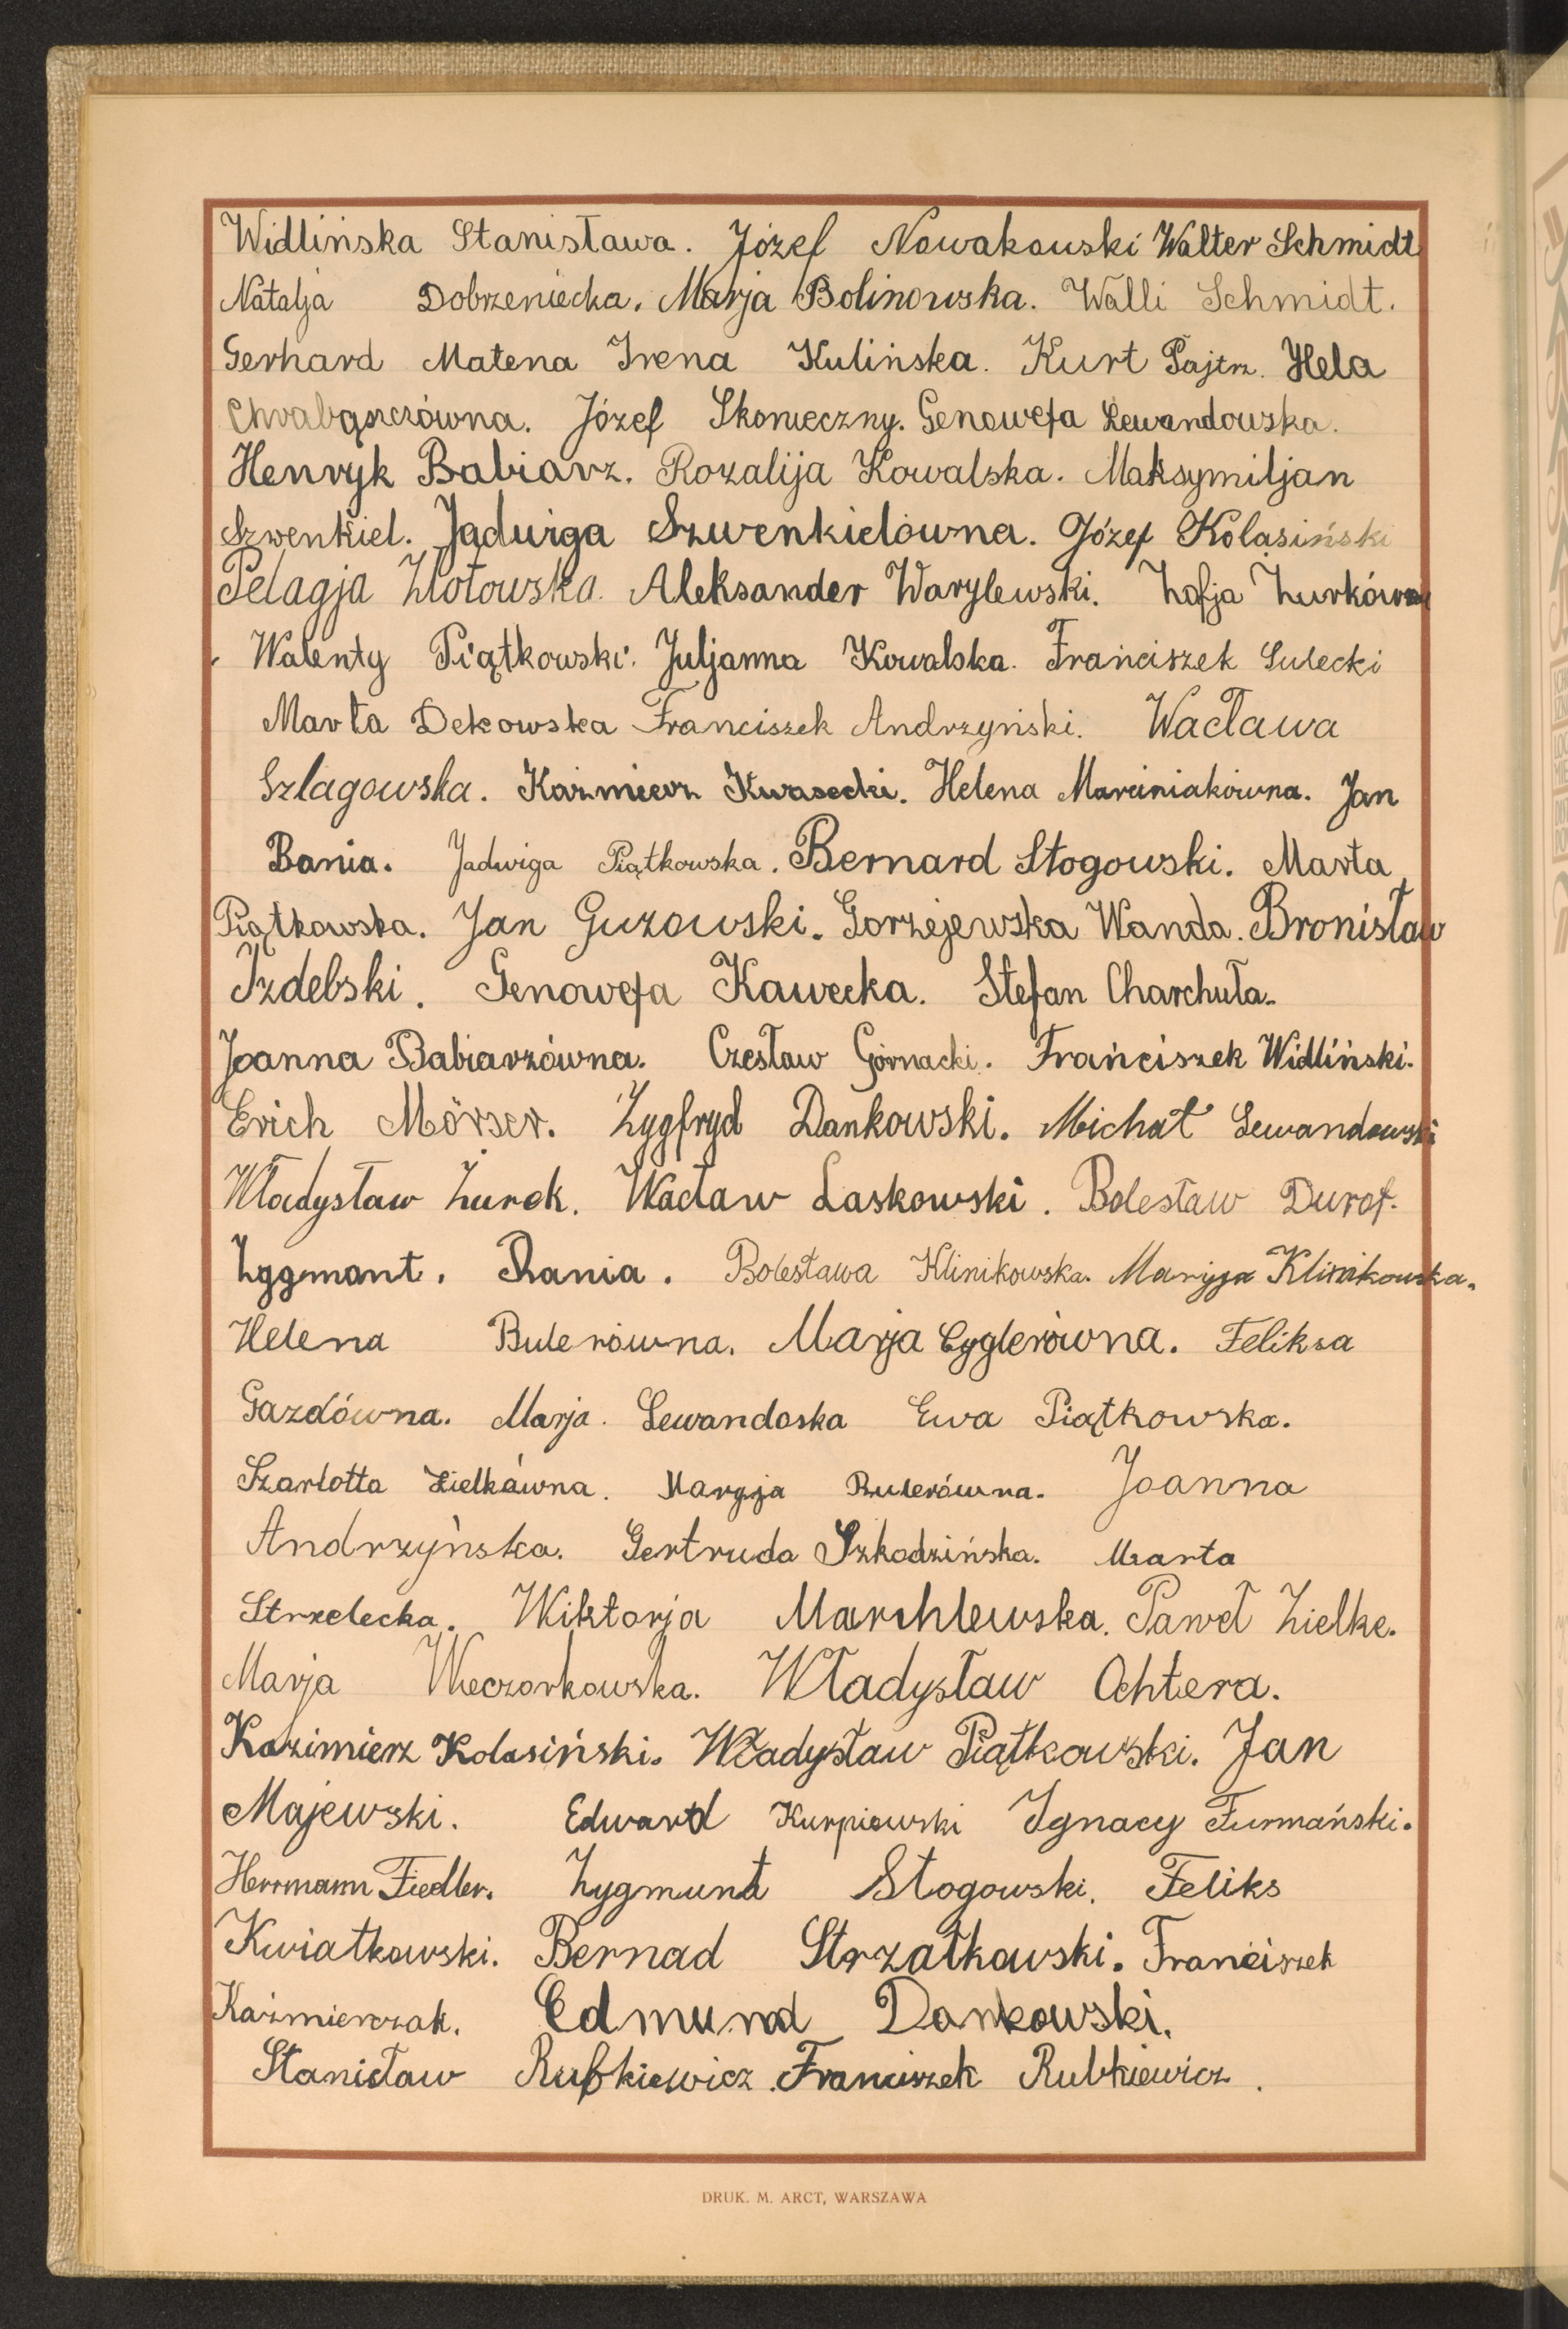 Widlińska Stanisława. Józef Nowakowski Walter Schmidt
Natalja Dobrzeniecka. Marja Bolinowska. Walli Schmidt.
Gerhard Matena Irena Kulińska. Kurt Pajtrz. Hela
Józef Skonieczny. Genowefa Lewandowska.
Henryk Babiarz. Rozalija Kowalska. Maksymiljan
Szwenkiel. Jadwiga Szwenkielówna. Józef Kolasiński
Pelagja Złotowska. Aleksander Warylewski. Zofja Żurkówna
Walenty Piątkowski. Juljanna Kowalska. Franciszek Sulecki
Marta Dekowska Franciszek Andrzyński. Wacława
Szlagowska. Kaźmierz Kwasecki. Helena Marciniakówna. Jan
Bania. Jadwiga Piątkowska. Bernard Stogowski. Marta
Piątkowska. Jan Guzowski. Gorzejewska Wanda. Bronisław
Izdebski. Genowefa Kawecka. Stefan Charchuła.
Joanna Babiarzówna. Czesław Górnacki. Franciszek Widliński.
Erich Mörser. Zygfryd Dankowski. Michał Lewandowski
Władysław Żurek. Wacław Laskowski. Bolesław Durof.
Zygmont. Rania. Bolesława Klinikowska. Maryja Klinikowska.
Helena Bulerówna. Marja Cyglerówna. Feliksa
Gazdówna. Marja. Lewandoska Ewa Piątkowska.
Szarlotta Zielkówna. Maryja Bulerówna. Joanna
Andrzyńska. Gertruda Szkodzińska. Marta
Strzelecka. Wiktorja Marchlewska. Paweł Zielke.
Marja Wieczorkowska. Władysław Ochtera.
Kazimierz Kolasiński. Władysław Piątkowski. Jan
Majewski. Edward Kurpiewski Ignacy Furmański.
Herrmann Fiedler. Zygmunt Stogowski. Feliks
Kwiatkowski. Bernad Strzałkowski. Franciszek
Kaźmierczak. Edmund Dankowski.
Stanisław Rubkiewicz. Franciszek Rubkiewicz.
DRUK. M. ARCT, WARSZAWA